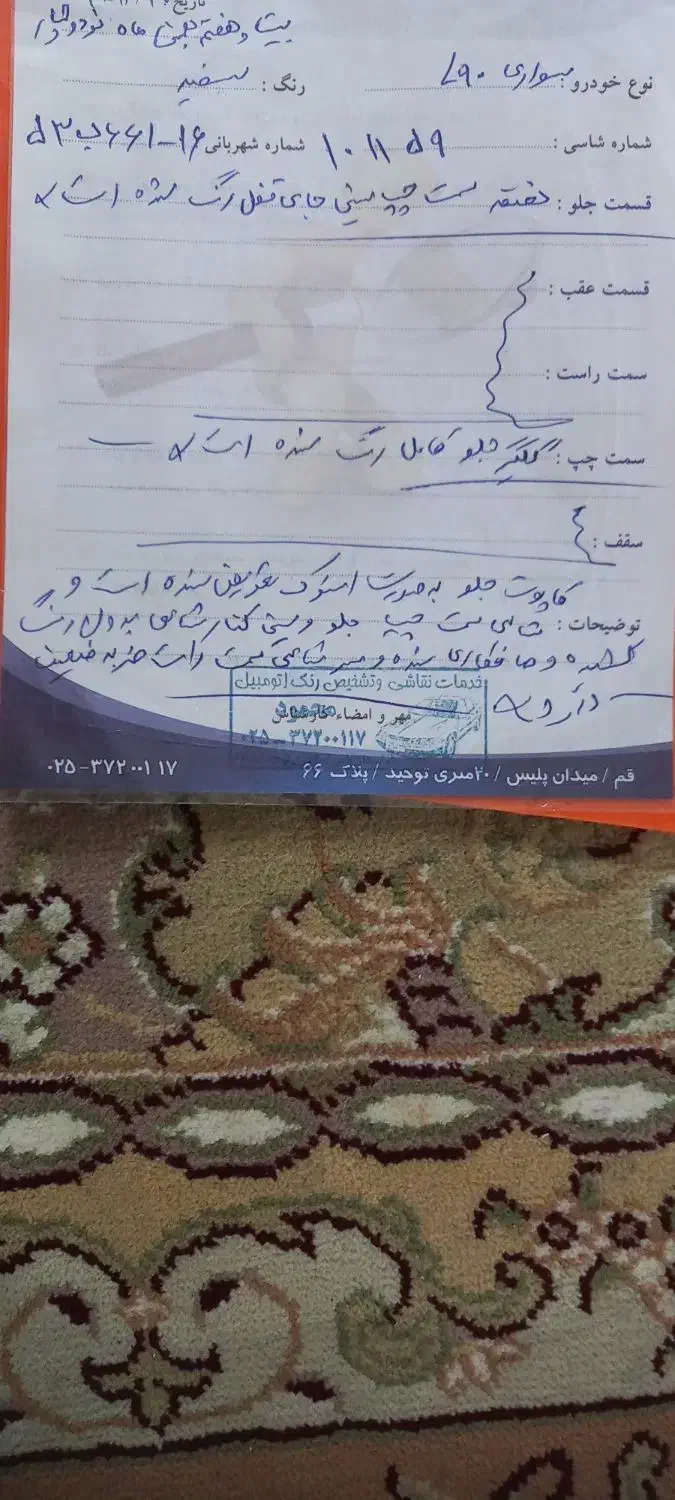 تاریخ:
بیست و هفتم بهمن ماه نود و چهار
نوع خودرو: سواری L۹۰ رنگ: سفید
شماره شاسی: ۱۰۱۱۵۹ شماره شهربانی ۱۶-۶۶۱ب۵۳
قسمت جلو: سمت چپ سینی جای قفل رنگ شده است
قسمت عقب:
سمت راست:
سمت چپ: گلگیر جلو کامل رنگ شده است
سقف:
کاپوت جلو به صورت استوک تعویض شده است و
توضیحات: شاسی سمت چپ جلو و سینی کنار شاسی بدون رنگ
شده و صافکاری شده و سر شاسی سمت راست ضربه خفیف
دارد
خدمات نقاشی و تشخیص رنگ اتومبیل
مهر و امضاء کارشناس
محمود
۰۲۵-۳۷۲۰۰۱۱۷
قم / میدان پلیس / ۲۰متری توحید / پلاک ۶۶ ۰۲۵-۳۷۲۰۰۱۱۷